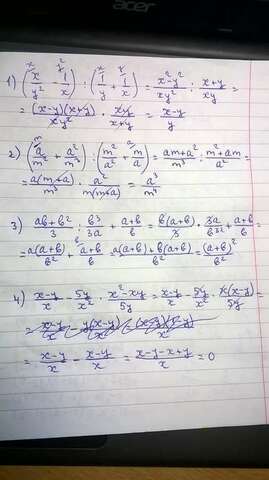 acer
1) (x/y² - 1/x) : (1/y + 1/x) = (x²-y²)/(xy²) : (x+y)/(xy) =
= ((x-y)(x+y))/(xy²) · (xy)/(x+y) = (x-y)/y
2) (a/m² + a²/m³) : (m²/a² + m/a) = (am+a²)/m³ : (m²+am)/a² =
= (a(m+a))/m³ · a²/(m(m+a)) = a³/m⁴
3) (ab+b²)/3 : b³/3a + (a+b)/b = (b(a+b))/3 · 3a/b³ + (a+b)/b =
= (a(a+b))/b² + (a+b)/b = (a(a+b)+b(a+b))/b² = (a+b)²/b²
4) (x-y)/x - 5y/x² · (x²-xy)/5y = (x-y)/x - 5y/x² · (x(x-y))/5y =
= (x-y)/x - (x-y)/x = (x-y-x+y)/x = 0